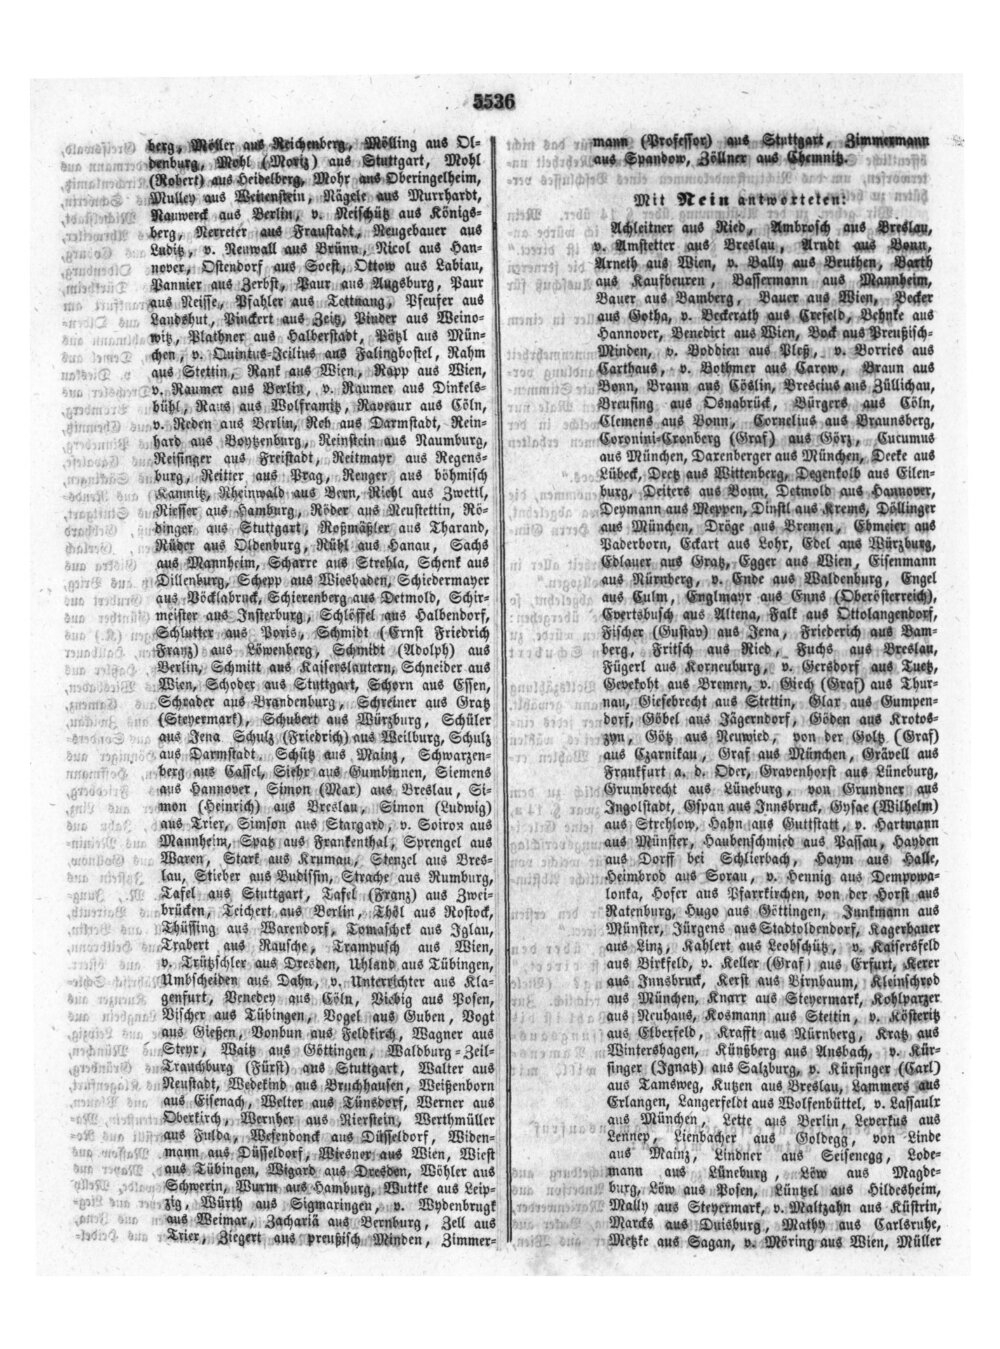 5536
berg, Möller aus Reichenberg, Mölling aus Ol-
denburg, Mohl (Moriz) aus Stuttgart, Mohl
(Robert) aus Heidelberg, Mohr aus Oberingelheim,
Mulley aus Weitenstein, Nägele aus Murrhardt,
Nauwerck aus Berlin, v. Neischütz aus Königs-
berg, Nerreter aus Fraustadt, Neugebauer aus
Luditz, v. Neuwall aus Brünn, Nicol aus Han-
nover, Ostendorf aus Soest, Ottow aus Labiau,
Pannier aus Zerbst, Paur aus Augsburg, Paur
aus Neisse, Pfahler aus Tettnang, Pfeufer aus
Landshut, Pinckert aus Zeitz, Pinder aus Weino-
witz, Plathner aus Halberstadt, Pötzl aus Mün-
chen, v. Quintus-Icilius aus Falingbostel, Rahm
aus Stettin, Rank aus Wien, Rapp aus Wien,
v. Raumer aus Berlin, v. Raumer aus Dinkels-
bühl, Raus aus Wolframitz, Raveaux aus Cöln,
v. Reden aus Berlin, Reh aus Darmstadt, Rein-
hard aus Boytzenburg, Reinstein aus Naumburg,
Reisinger aus Freistadt, Reitmayr aus Regens-
burg, Reitter aus Prag, Renger aus böhmisch
Kamnitz, Rheinwald aus Bern, Riehl aus Zwettl,
Riesser aus Hamburg, Röder aus Neustettin, Rö-
dinger aus Stuttgart, Roßmäßler aus Tharand,
Rüder aus Oldenburg, Rühl aus Hanau, Sachs
aus Mannheim, Scharre aus Strehla, Schenk aus
Dillenburg, Schepp aus Wiesbaden, Schiedermayer
aus Vöcklabruck, Schierenberg aus Detmold, Schir-
meister aus Insterburg, Schlöffel aus Halbendorf,
Schlutter aus Poris, Schmidt (Ernst Friedrich
Franz) aus Löwenberg, Schmidt (Adolph) aus
Berlin, Schmitt aus Kaiserslautern, Schneider aus
Wien, Schoder aus Stuttgart, Schorn aus Essen,
Schrader aus Brandenburg, Schreiner aus Gratz
(Steyermark), Schubert aus Würzburg, Schüler
aus Jena Schulz (Friedrich) aus Weilburg, Schulz
aus Darmstadt, Schütz aus Mainz, Schwarzen-
berg aus Cassel, Siehr aus Gumbinnen, Siemens
aus Hannover, Simon (Max) aus Breslau, Si-
mon (Heinrich) aus Breslau, Simon (Ludwig)
aus Trier, Simson aus Stargard, v. Soiron aus
Mannheim, Spatz aus Frankenthal, Sprengel aus
Waren, Stark aus Krumau, Stenzel aus Bres-
lau, Stieber aus Budissin, Strache aus Rumburg,
Tafel aus Stuttgart, Tafel (Franz) aus Zwei-
brücken, Teichert aus Berlin, Thöl aus Rostock,
Thüssing aus Warendorf, Tomaschek aus Iglau,
Trabert aus Rausche, Trampusch aus Wien,
v. Trützschler aus Dresden, Uhland aus Tübingen,
Umbscheiden aus Dahn, v. Unterrichter aus Kla-
genfurt, Venedey aus Cöln, Viebig aus Posen,
Vischer aus Tübingen, Vogel aus Guben, Vogt
aus Gießen, Vonbun aus Feldkirch, Wagner aus
Steyr, Waitz aus Göttingen, Waldburg-Zeil-
Trauchburg (Fürst) aus Stuttgart, Walter aus
Neustadt, Wedekind aus Bruchhausen, Weißenborn
aus Eisenach, Welter aus Tünsdorf, Werner aus
Oberkirch, Wernher aus Nierstein, Werthmüller
aus Fulda, Wesendonck aus Düsseldorf, Widen-
mann aus Düsseldorf, Wiesner aus Wien, Wiest
aus Tübingen, Wigard aus Dresden, Wöhler aus
Schwerin, Wurm aus Hamburg, Wuttke aus Leip-
zig, Würth aus Sigmaringen, v. Wydenbrugk
aus Weimar, Zachariä aus Bernburg, Zell aus
Trier, Ziegert aus preußisch Minden, Zimmer-
mann (Professor) aus Stuttgart, Zimmermann
aus Spandow, Zöllner aus Chemnitz.
Mit Nein antworteten:
Achleitner aus Ried, Ambrosch aus Breslau,
v. Amstetter aus Breslau, Arndt aus Bonn,
Arneth aus Wien, v. Bally aus Beuthen, Barth
aus Kaufbeuren, Bassermann aus Mannheim,
Bauer aus Bamberg, Bauer aus Wien, Becker
aus Gotha, v. Beckerath aus Crefeld, Behnke aus
Hannover, Benedict aus Wien, Bock aus Preußisch-
Minden, v. Boddien aus Pleß, v. Borries aus
Carthaus, v. Bothmer aus Carow, Braun aus
Bonn, Braun aus Cöslin, Brescius aus Züllichau,
Breusing aus Osnabrück, Bürgers aus Cöln,
Clemens aus Bonn, Cornelius aus Braunsberg,
Coronini-Cronberg (Graf) aus Görz, Cucumus
aus München, Darenberger aus München, Deeke aus
Lübeck, Deetz aus Wittenberg, Degenkolb aus Eilen-
burg, Deiters aus Bonn, Detmold aus Hannover,
Deymann aus Meppen, Dinstl aus Krems, Döllinger
aus München, Dröge aus Bremen, Ebmeier aus
Paderborn, Eckart aus Lohr, Edel aus Würzburg,
Edlauer aus Gratz, Egger aus Wien, Eisenmann
aus Nürnberg, v. Ende aus Waldenburg, Engel
aus Culm, Englmayr aus Enns (Oberösterreich),
Evertsbusch aus Altena, Falk aus Ottolangendorf,
Fischer (Gustav) aus Jena, Friederich aus Bam-
berg, Fritsch aus Ried, Fuchs aus Breslau,
Fügerl aus Korneuburg, v. Gersdorf aus Tuetz,
Gevekoht aus Bremen, v. Giech (Graf) aus Thur-
nau, Giesebrecht aus Stettin, Glax aus Gumpen-
dorf, Göbel aus Jägerndorf, Göden aus Krotos-
zyn, Götz aus Neuwied, von der Goltz (Graf)
aus Czarnikau, Graf aus München, Grävell aus
Frankfurt a. d. Oder, Gravenhorst aus Lüneburg,
Grumbrecht aus Lüneburg, von Grundner aus
Ingolstadt, Gspan aus Innsbruck, Gysae (Wilhelm)
aus Strehlow, Hahn aus Guttstatt, v. Hartmann
aus Münster, Haubenschmied aus Passau, Hayden
aus Dorff bei Schlierbach, Haym aus Halle,
Heimbrod aus Sorau, v. Hennig aus Dempowa-
lonka, Hofer aus Pfarrkirchen, von der Horst aus
Ratenburg, Hugo aus Göttingen, Junkmann aus
Münster, Jürgens aus Stadtoldendorf, Kagerbauer
aus Linz, Kahlert aus Leobschütz, v. Kaisersfeld
aus Birkfeld, v. Keller (Graf) aus Erfurt, Kerer
aus Innsbruck, Kerst aus Birnbaum, Kleinschrod
aus München, Knarr aus Steyermark, Kohlparzer
aus Neuhaus, Kosmann aus Stettin, v. Kösteritz
aus Elberfeld, Krafft aus Nürnberg, Kratz aus
Wintershagen, Künßberg aus Ansbach, v. Kür-
singer (Ignatz) aus Salzburg, v. Kürsinger (Carl)
aus Tamsweg, Kutzen aus Breslau, Lammers aus
Erlangen, Langerfeldt aus Wolfenbüttel, v. Lassaulx
aus München, Lette aus Berlin, Leverkus aus
Lenney, Lienbacher aus Goldegg, von Linde
aus Mainz, Lindner aus Seisenegg, Lode-
mann aus Lüneburg, Löw aus Magde-
burg, Löw aus Posen, Lüntzel aus Hildesheim,
Mally aus Steyermark, v. Maltzahn aus Küstrin,
Marcks aus Duisburg, Mathy aus Carlsruhe,
Metzke aus Sagan, v. Möring aus Wien, Müller